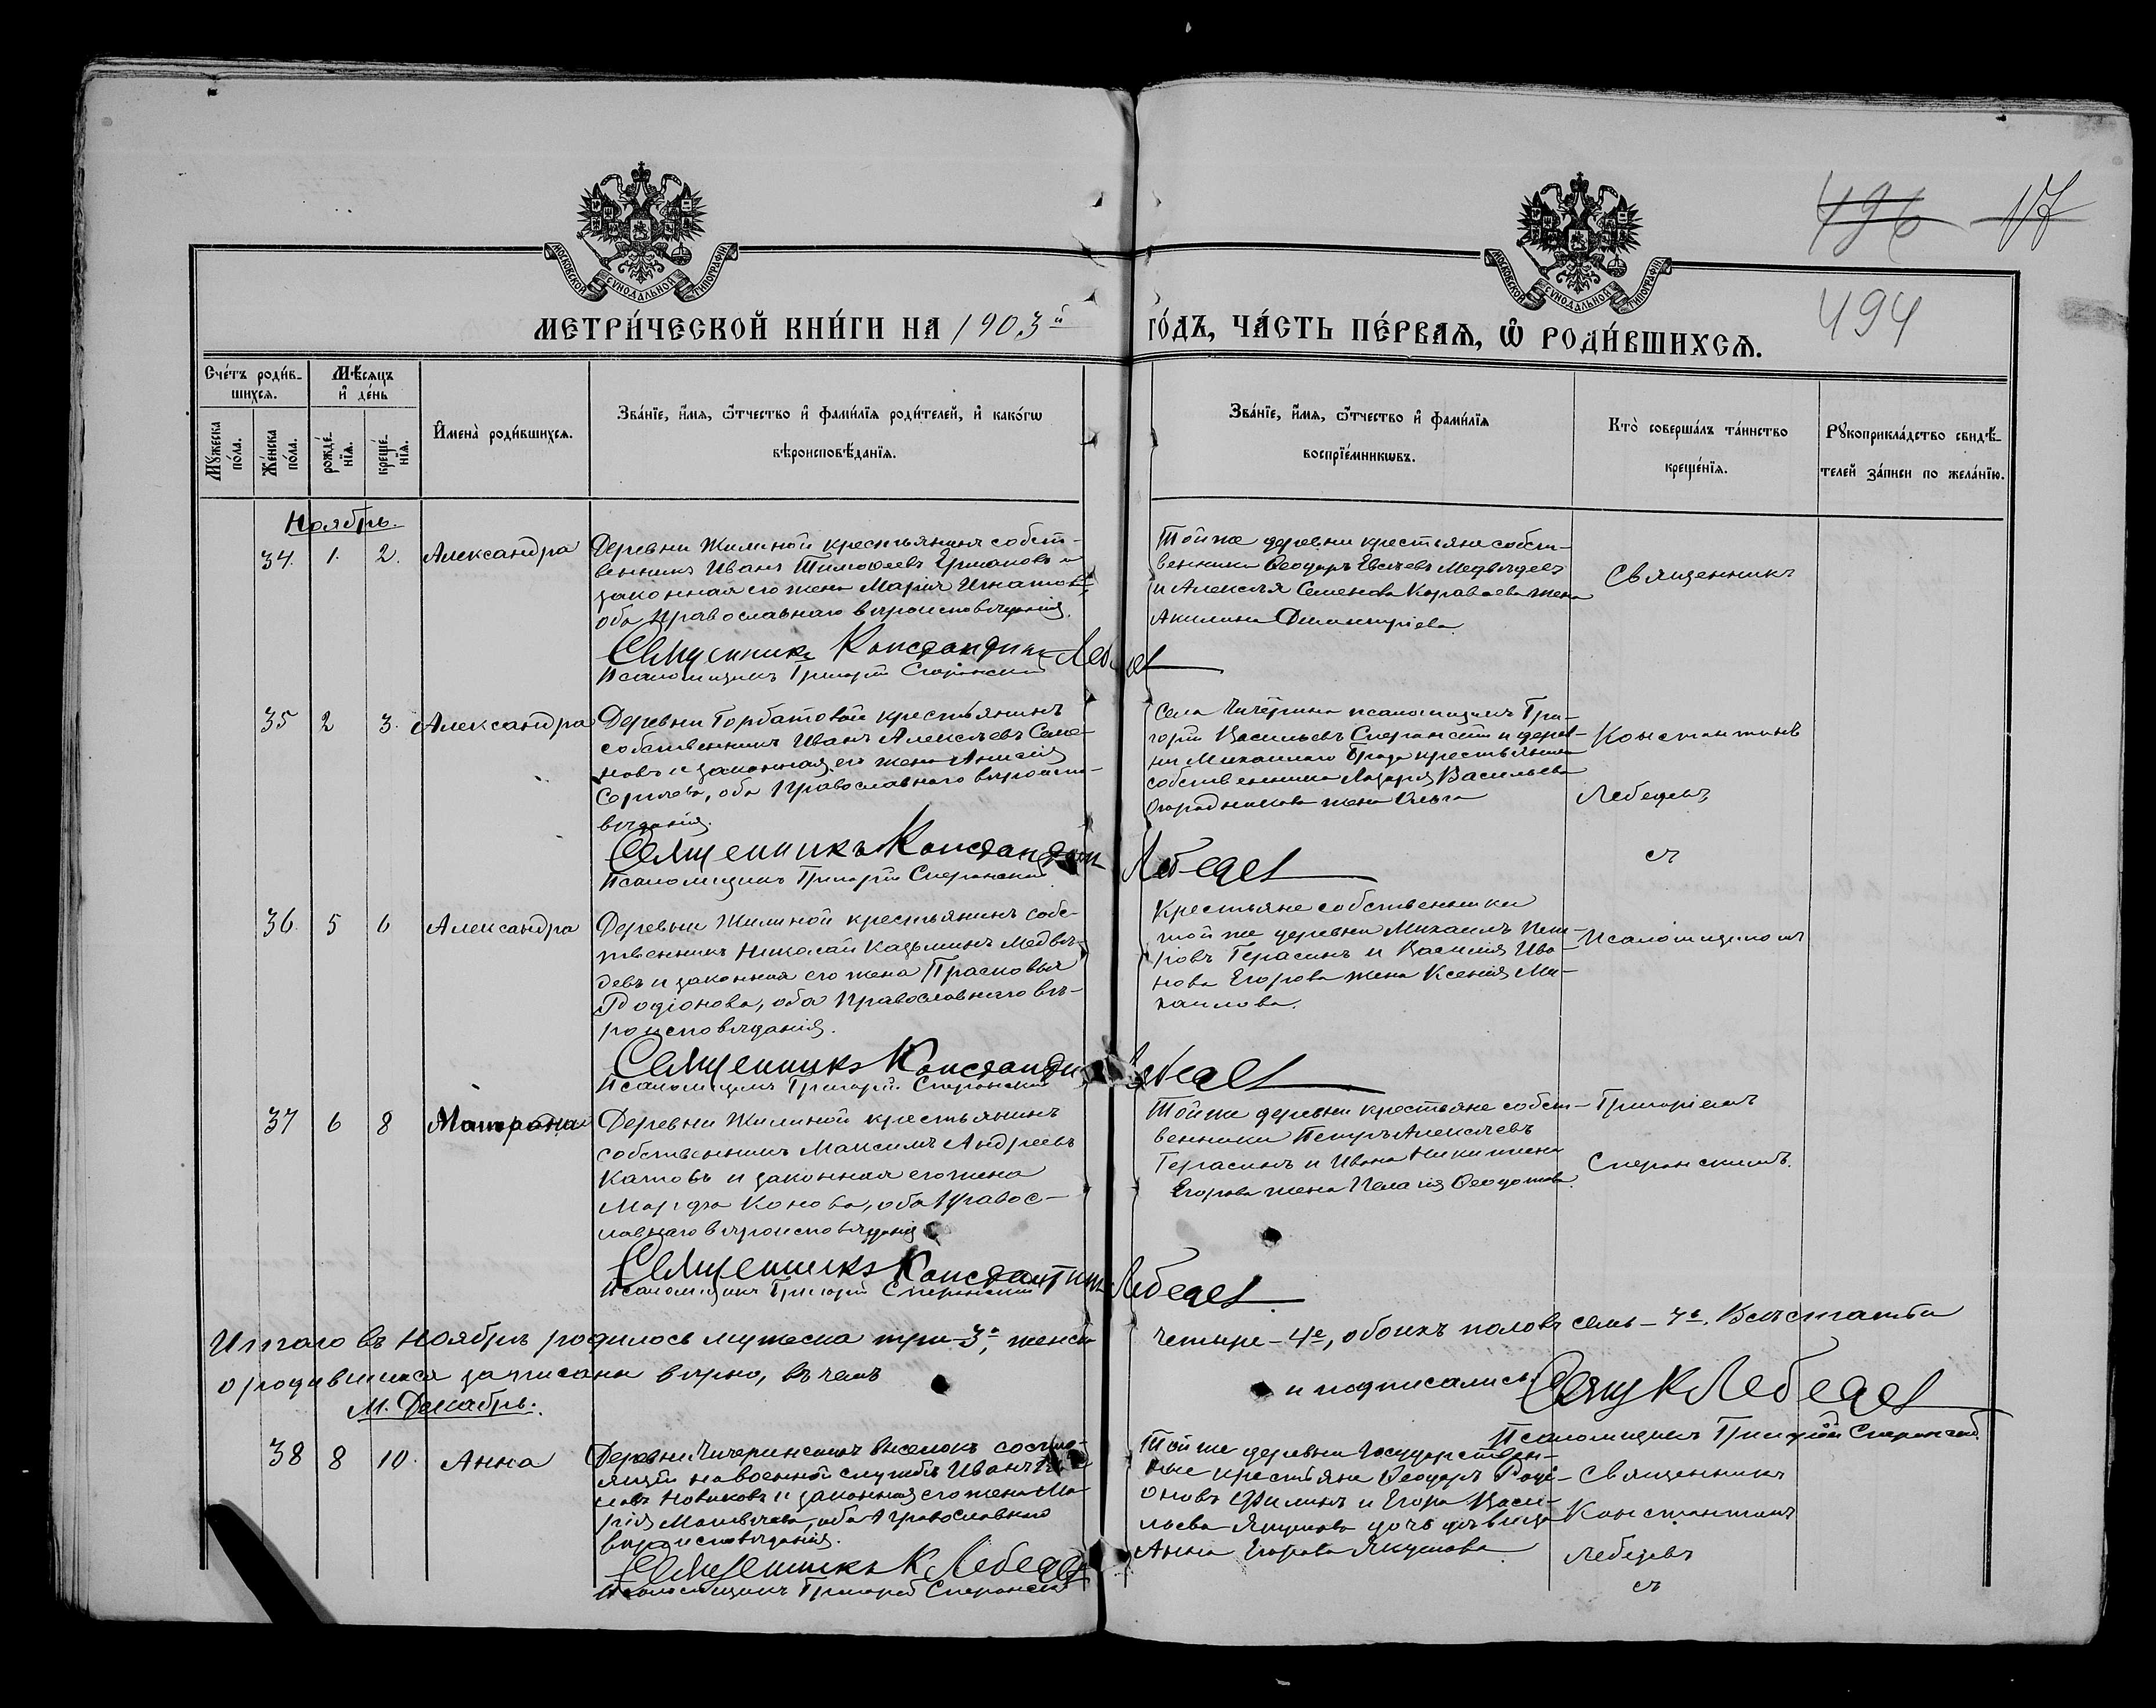 496 17
494
МОСКОВСКОЙ СѴНОДАЛЬНОЙ ТИПОГРАФІИ
МОСКОВСКОЙ СѴНОДАЛЬНОЙ ТИПОГРАФІИ
МЕТРИ́ЧЕСКОЙ КНИ́ГИ НА 1903й го́дъ, ЧА́СТЬ ПЕ́РВАѦ, Ѽ РОДИ́ВШИХСѦ.
Сче́тъ роди́в-
шихсѧ.
Мꙋ́жеска по́ла.
Же́нска по́ла.
Мѣ́сѧцъ
и҆ де́нь
рожде́-
нїѧ.
креще́-
нїѧ.
И҆мена̀ роди́вшихсѧ.
Зва́нїе, и҆́мѧ, ѻ҆́тчество и҆ фами́лїѧ роди́телей, и҆ како́гѡ
вѣроисповѣ́данїѧ.
Зва́нїе, и҆́мѧ, ѻ҆́тчество и҆ фами́лїѧ
воспрїе́мникѡвъ.
Кто̀ соверша́лъ та́инство
креще́нїѧ.
Рꙋкоприкла́дство свидѣ́-
телей за́писи по жела́нїю.
Ноябрь.
34. 1. 2. Александра
Деревни Жилиной крестьянинъ собст-
венникъ Иванъ Тимоѳеевъ Ермаковъ и
законная его жена Марія Игнатова,
оба Православнаго вѣроисповѣданія.
Священникъ Константинъ Лебедев
Псаломщикъ Григорій Сперанский
Той же деревни крестьяне собст-
венники Ѳеодоръ Евсѣевъ Медвѣдевъ
и Алексѣя Семенова Караваева жена
Акилина Димитріева.
Священникъ
35 2 3. Александра
Деревни Горбатовой крестьянинъ
собственникъ Иванъ Алексѣевъ Семе-
новъ и законная его жена Анисія
Сергѣева, оба Православнаго вѣроиспо-
вѣданія.
Священникъ Константин Лебедев
Псаломщикъ Григорій Сперанский
Села Чичерина псаломщикъ Гри-
горій Васильевъ Сперанский и дерев-
ни Михайлова Брода крестьянина
собственника Лазаря Васильева
Огородникова жена Ольга
Константинъ
Лебедевъ
съ
36 5 6 Александра
Деревни Жилиной крестьянинъ собс-
твенникъ Николай Кадьминъ Медвѣ-
девъ и законная его жена Прасковья
Родіонова, оба Православнаго вѣ-
роисповѣданія.
Священникъ Константин Лебедев
Псаломщикъ Григорій Сперанский
Крестьяне собственники
той же деревни Михаилъ Пет-
ровъ Герасинъ и Василія Ива-
нова Егорова жена Ксенія Ми-
хаилова.
псаломщикомъ
37 6 8 Матрона
Деревни Жилиной крестьянинъ
собственникъ Максимъ Андреевъ
Катовъ и законная его жена
Марѳа Конова, оба Правос-
лавнаго вѣроисповѣданія
Священникъ Константин Лебедев
Псаломщикъ Григорій Сперанский
Той же деревни крестьяне собст-
венники Петръ Алексѣевъ
Герасинъ и Ивана Никитина
Егорова жена Пелагія Ѳеодотова.
Григоріемъ
Сперанскимъ.
Итого въ Ноябрѣ родилось мужеска три-3, женска четыре-4е, обоихъ половъ семь-7ь. Всѣ статьи
о родившихся записаны вѣрно, въ чемъ и подписались. Свящ К Лебедев
Псаломщикъ Григорій Сперанский.
М. Декабрь.
38 8 10. Анна
Деревни Чичеринскихъ выселокъ состо-
ящій на военной службѣ Иванъ
новъ Новиковъ и законная его жена Ма-
рія Матвѣева, оба Православнаго
вѣроисповѣданія.
Священникъ К Лебедев
Псаломщикъ Григорій Сперанский
Той же деревни Государствен-
ные крестьяне Ѳеодоръ Роді-
оновъ Филинъ и Егора Васи-
льева Якунова дочь дѣвица
Анна Егорова Якунова.
Священникъ
Константинъ
Лебедевъ
съ